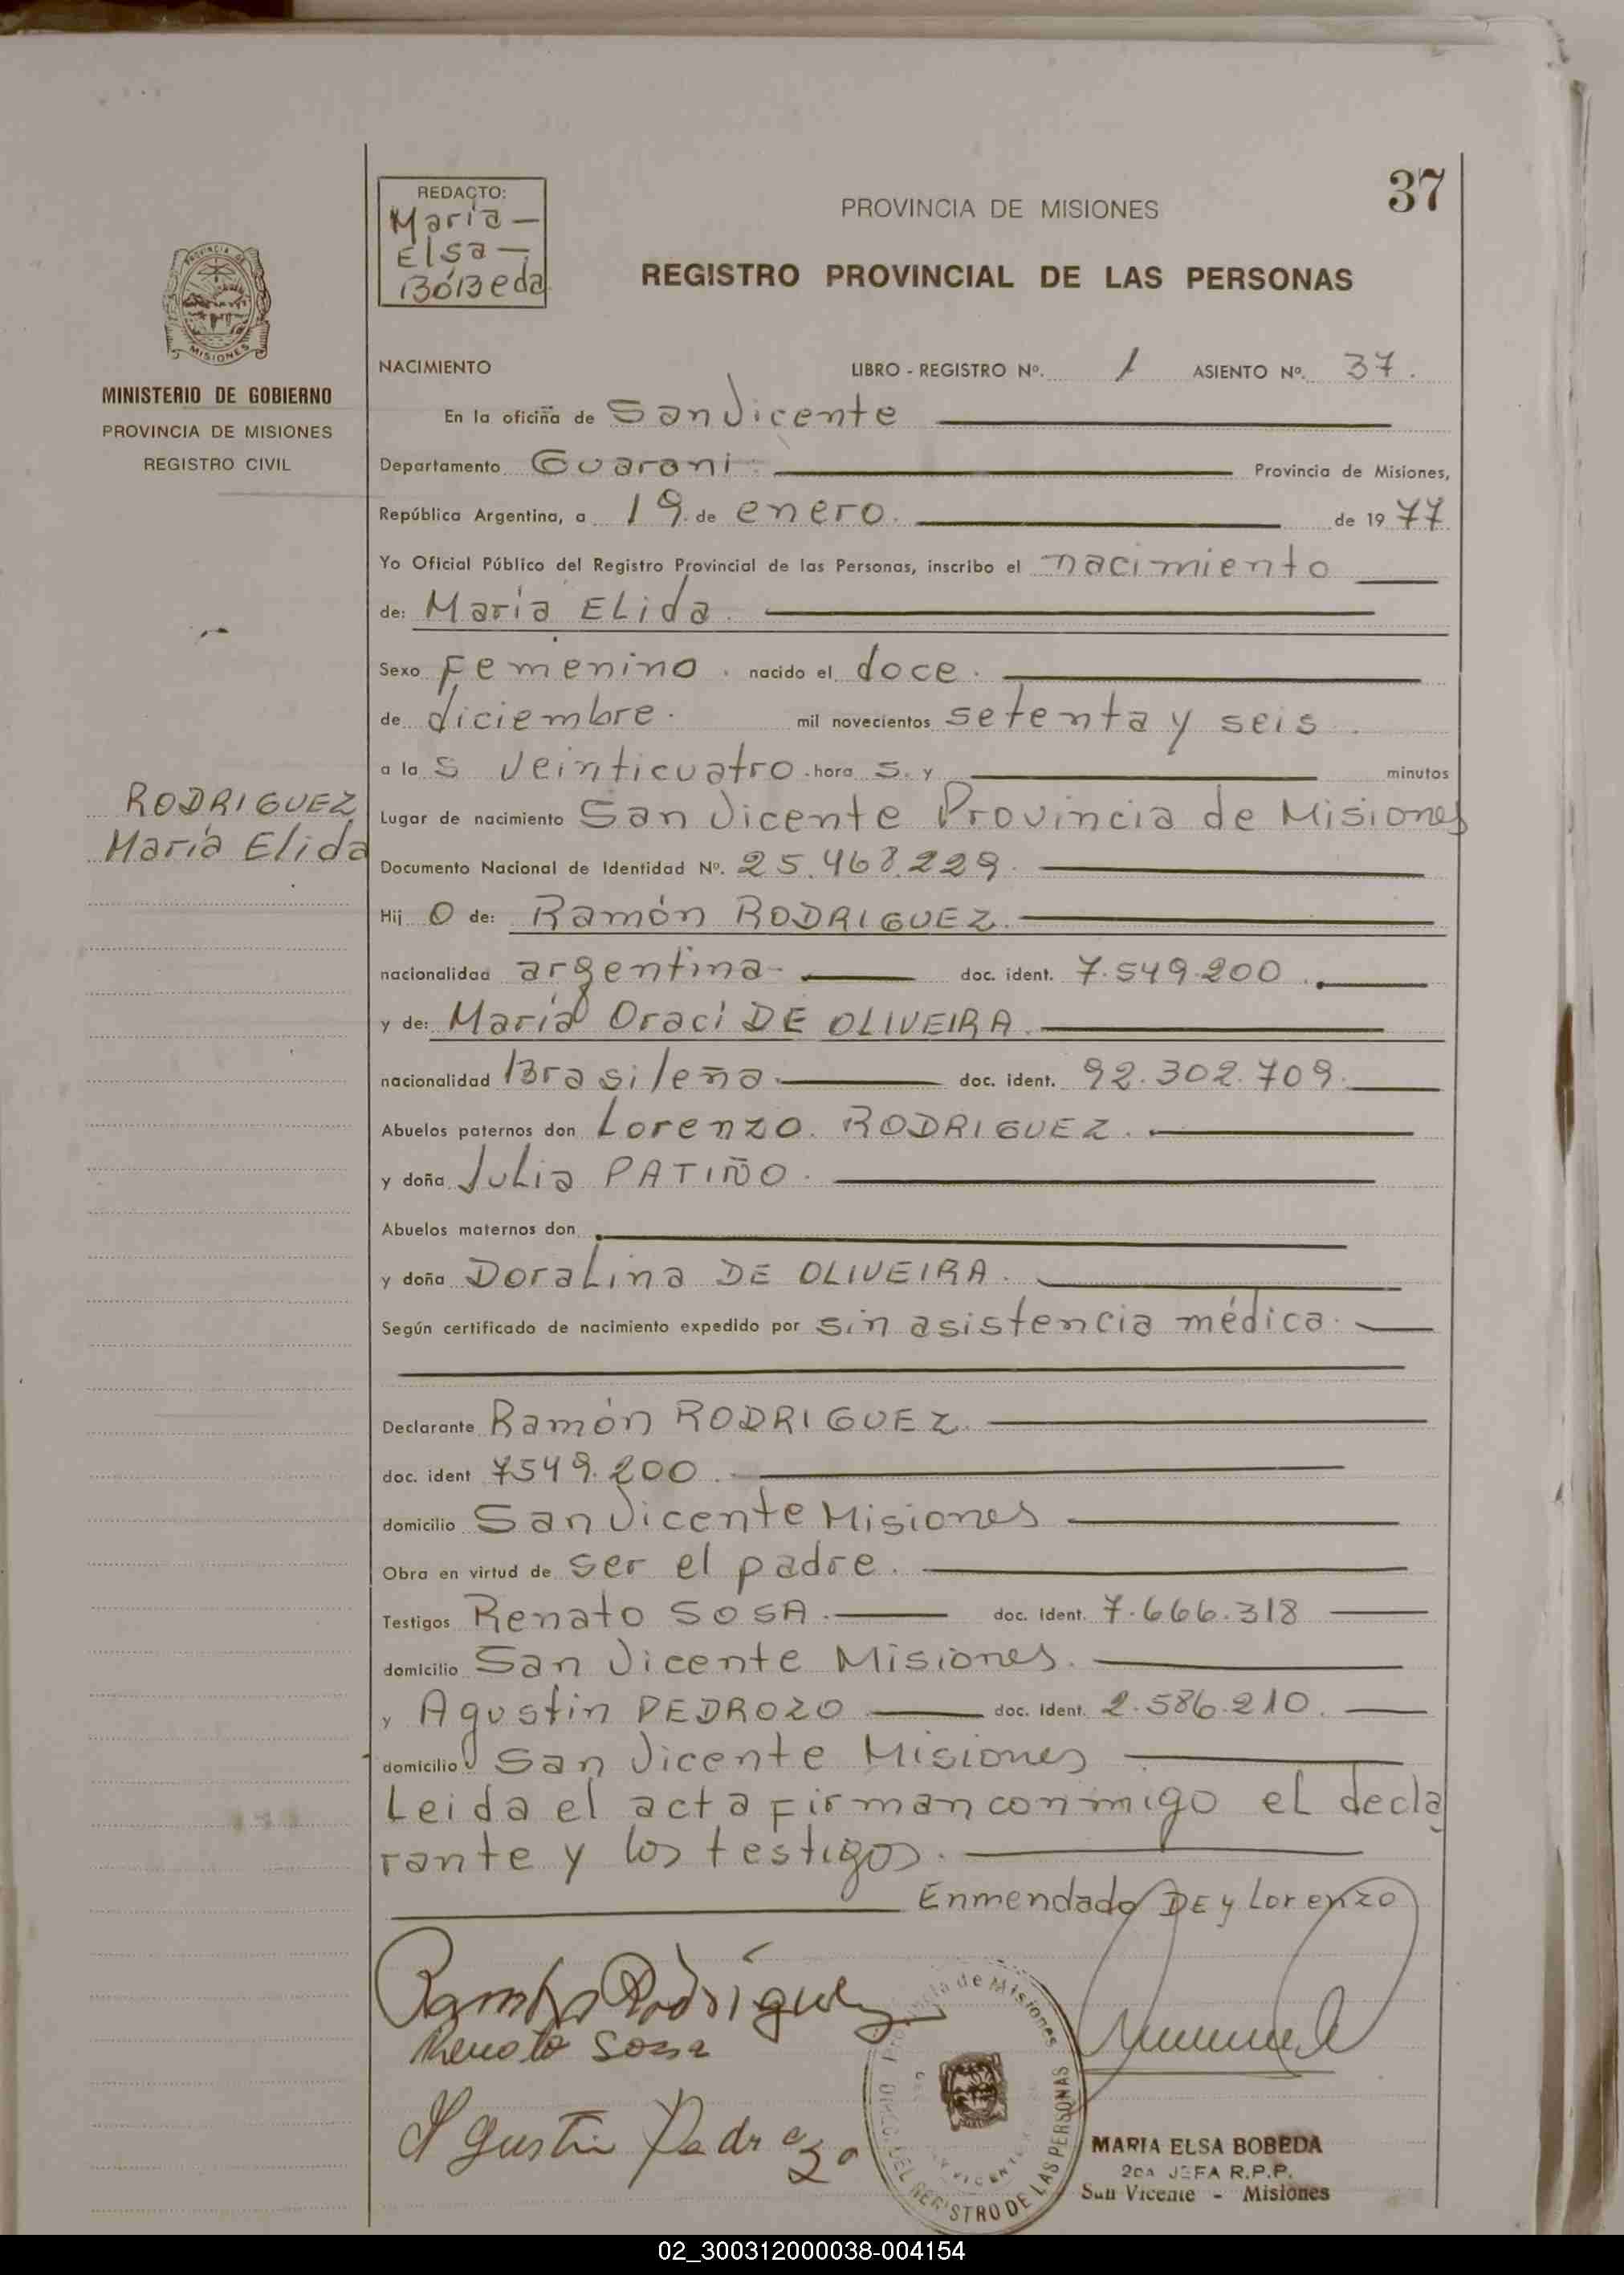 37
REDACTO:
María —
Elsa —
BóBeda
PROVINCIA DE MISIONES
REGISTRO PROVINCIAL DE LAS PERSONAS
PROVINCIA DE
MISIONES
MINISTERIO DE GOBIERNO
PROVINCIA DE MISIONES
REGISTRO CIVIL
NACIMIENTO LIBRO - REGISTRO Nº. 1 ASIENTO Nº. 37.
En la oficina de San Vicente
Departamento Guarani. Provincia de Misiones,
República Argentina, a 19 de enero. de 1977
Yo Oficial Público del Registro Provincial de las Personas, inscribo el nacimiento
de: María ELida.
Sexo Femenino. nacido el doce.
de diciembre. mil novecientos setenta y seis
a las veinticuatro hora s. y minutos
RODRIGUEZ
María Elida
Lugar de nacimiento San Vicente Provincia de Misiones
Documento Nacional de Identidad Nº. 25.468.229.
Hij O de: Ramón RODRIGUEZ.
nacionalidad argentina- doc. ident. 7.549.200.
y de: María Oraci DE OLIVEIRA.
nacionalidad Brasileña. doc. ident. 92.302.709.
Abuelos paternos don Lorenzo. RODRIGUEZ.
y doña Julia PATIÑO.
Abuelos maternos don
y doña DoraLina DE OLIVEIRA.
Según certificado de nacimiento expedido por sin asistencia médica.
Declarante Ramón RODRIGUEZ.
doc. ident 7549.200.
domicilio San Vicente Misiones
Obra en virtud de ser el padre.
Testigos Renato SOSA. doc. Ident. 7.666.318
domicilio San Vicente Misiones.
y Agustin PEDROZO doc. Ident. 2.586.210.
domicilio San Vicente Misiones
Leida el acta Firman conmigo el decla
rante y los testigos.
Enmendado DE y Lorenzo
Ramón Rodríguez
Renato Sosa
Agustin Pedrozo
Provincia de Misiones
DIREC. DEL REGISTRO DE LAS PERSONAS
MARIA ELSA BOBEDA
2da JEFA R.P.P.
San Vicente - Misiones
02_300312000038-004154